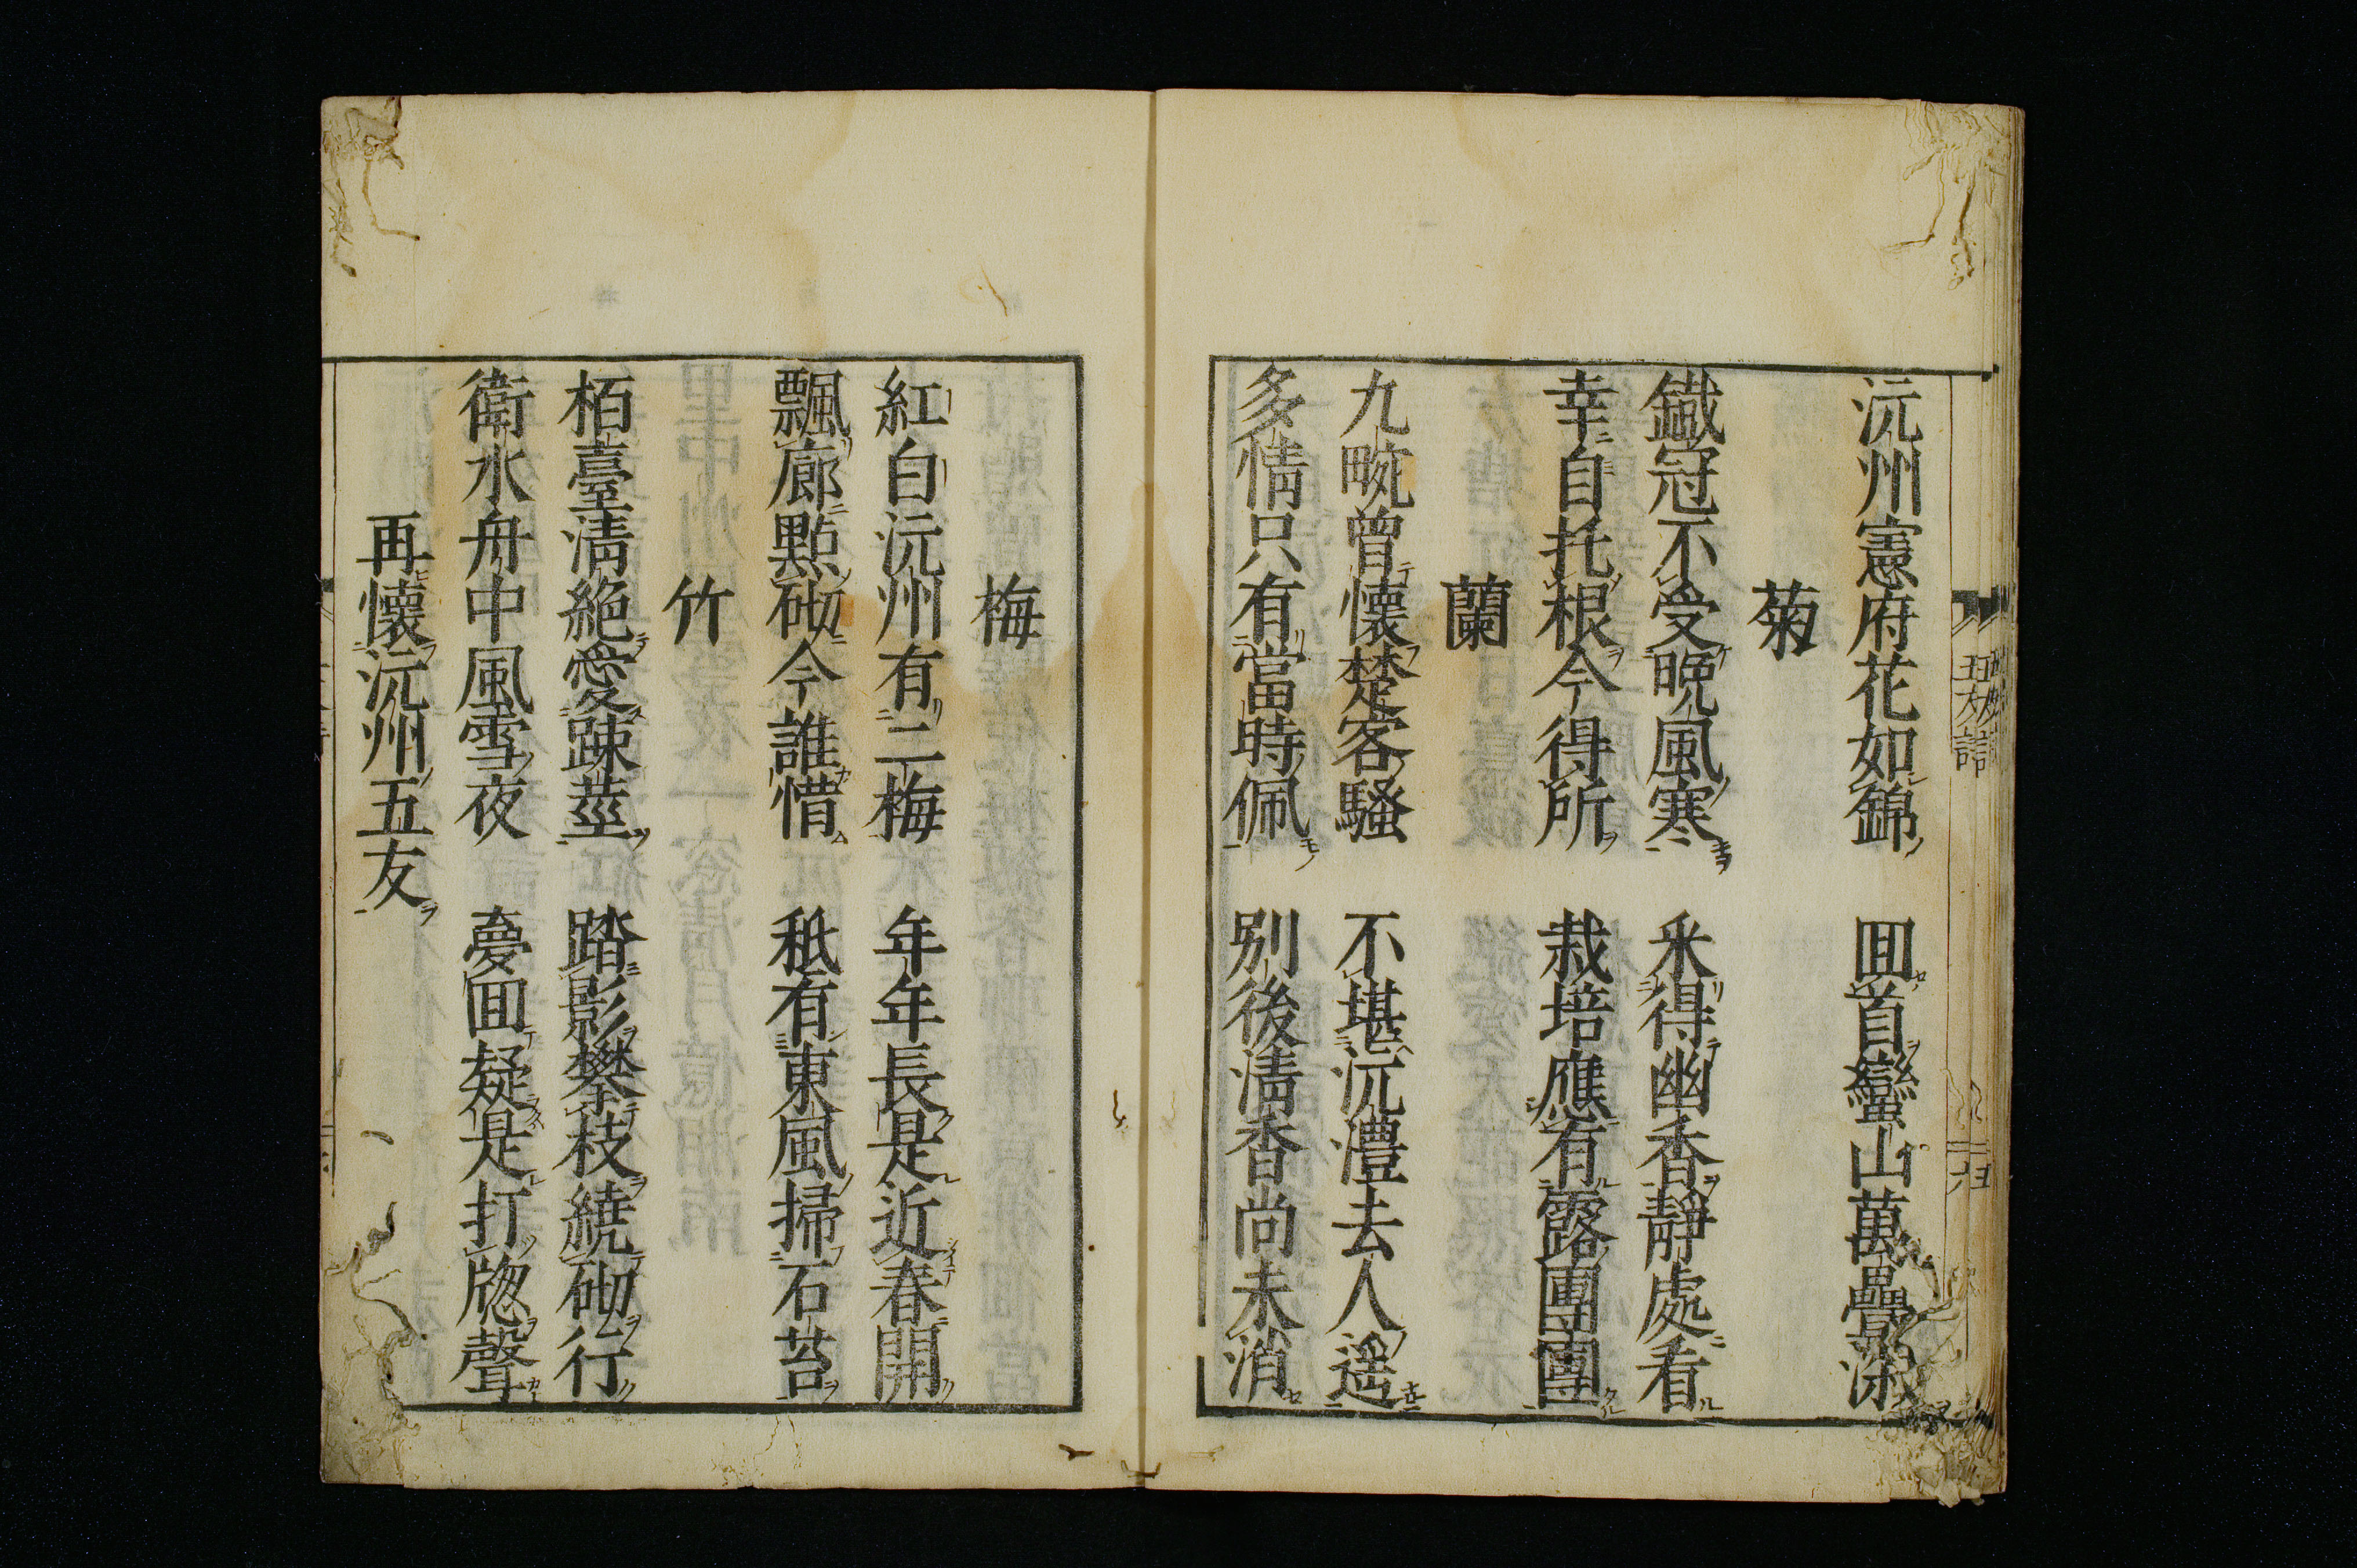 沅州憲府花如錦　囬首蠻山萬疊深
菊
鐵冠不受晩風寒　釆得幽香靜處看
幸自托根今得所　栽培應有露團團
蘭
九畹曽懐楚客騷　不堪沅澧去人遥
多情只有當時佩　别後清香尚未消
梅
紅白沅州有二梅　年年長是近春開
飄廊點砌今誰惜　秖有東風掃石苔
竹
栢臺清絶愛踈莖　踏影攀枝繞砌行
衛水舟中風雪夜　夢囬疑是打牎聲
再懐沅州五友